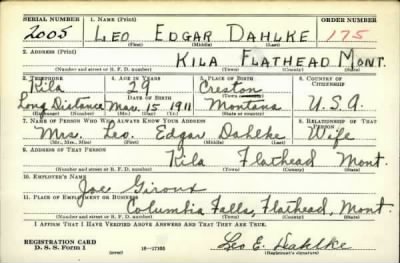 SERIAL NUMBER 1. NAME (Print) ORDER NUMBER
2005 LEO EDGAR DAHLKE 175
(First) (Middle) (Last)
2. ADDRESS (Print)
KILA FLATHEAD MONT.
(Number and street or R. F. D. number) (Town) (County) (State)
3. TELEPHONE 4. AGE IN YEARS 5. PLACE OF BIRTH 6. COUNTRY OF CITIZENSHIP
Kila 29 Creston
DATE OF BIRTH (Town or county)
Long Distance Mar. 15 1911 Montana U.S.A.
(Exchange) (Number) (Mo.) (Day) (Yr.) (State or country)
7. NAME OF PERSON WHO WILL ALWAYS KNOW YOUR ADDRESS 8. RELATIONSHIP OF THAT PERSON
Mrs. Leo. Edgar Dahlke Wife
(Mr., Mrs., Miss) (First) (Middle) (Last)
9. ADDRESS OF THAT PERSON
Kila Flathead Mont.
(Number and street or R. F. D. number) (Town) (County) (State)
10. EMPLOYER'S NAME
Joe Giroux
11. PLACE OF EMPLOYMENT OR BUSINESS
Columbia Falls, Flathead, Mont.
(Number and street or R. F. D. number) (Town) (County) (State)
I AFFIRM THAT I HAVE VERIFIED ABOVE ANSWERS AND THAT THEY ARE TRUE.
REGISTRATION CARD
D. S. S. Form 1 16—17105 Leo E. Dahlke
(over) (Registrant's signature)